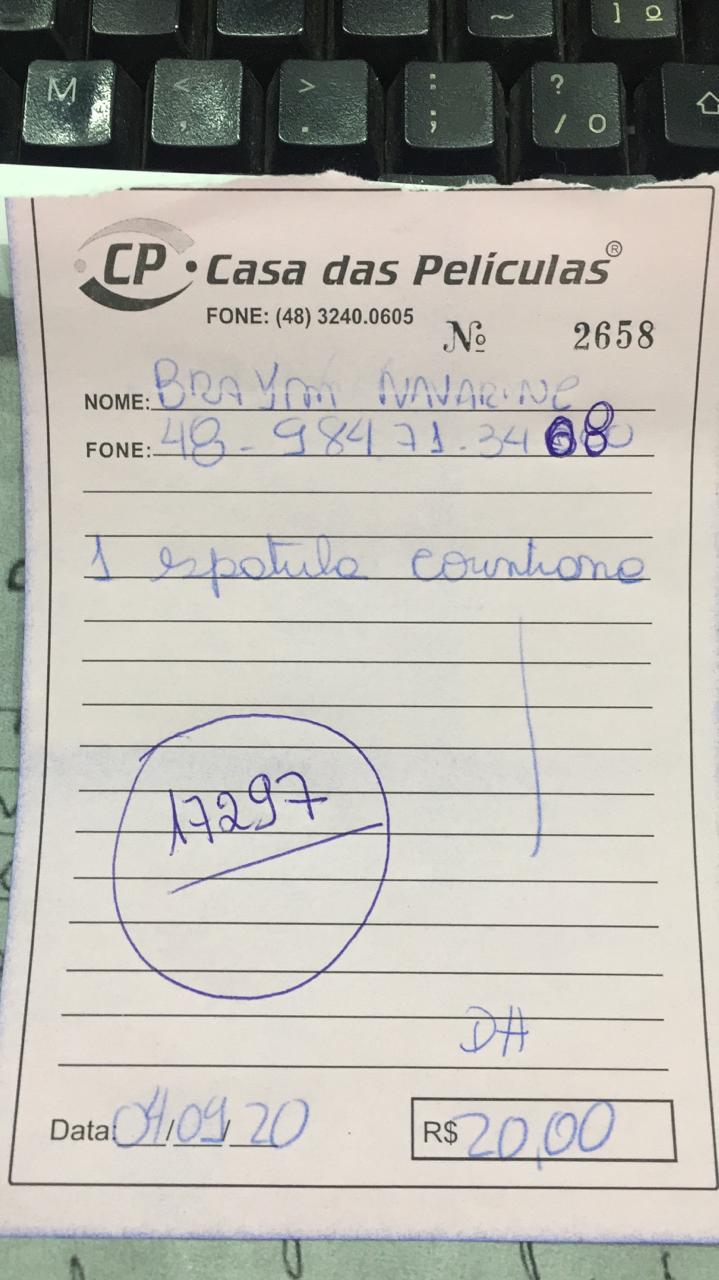 M < , > . : ; ? / ~ ] º
CP • Casa das Películas®
FONE: (48) 3240.0605
Nº 2658
NOME: BRAYAM
FONE: 48-98471-3468
1 espatula
17297
DH
Data: 04/09/20
R$ 20,00